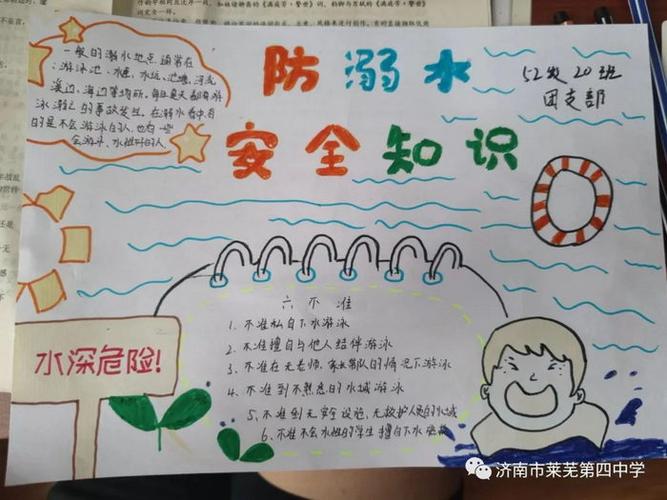 防溺水
52级20班
团支部
安全知识
一般的溺水地点通常在
游泳池、水库、水坑、池塘、河流
溪边、海边等场所，每日夏天都有游
泳溺之的事故发生，在溺水者中，有
的是不会游泳的人，也有一些
会游泳、水性好的人。
六不准
1、不准私自下水游泳
2、不准擅自与他人结伴游泳
3、不准在无老师、家长带队的情况下游泳
4、不准到不熟悉的水域游泳
5、不准到无安全设施、无救护人员的水域
6、不准不会水性的学生擅自下水
水深危险！
济南市莱芜第四中学